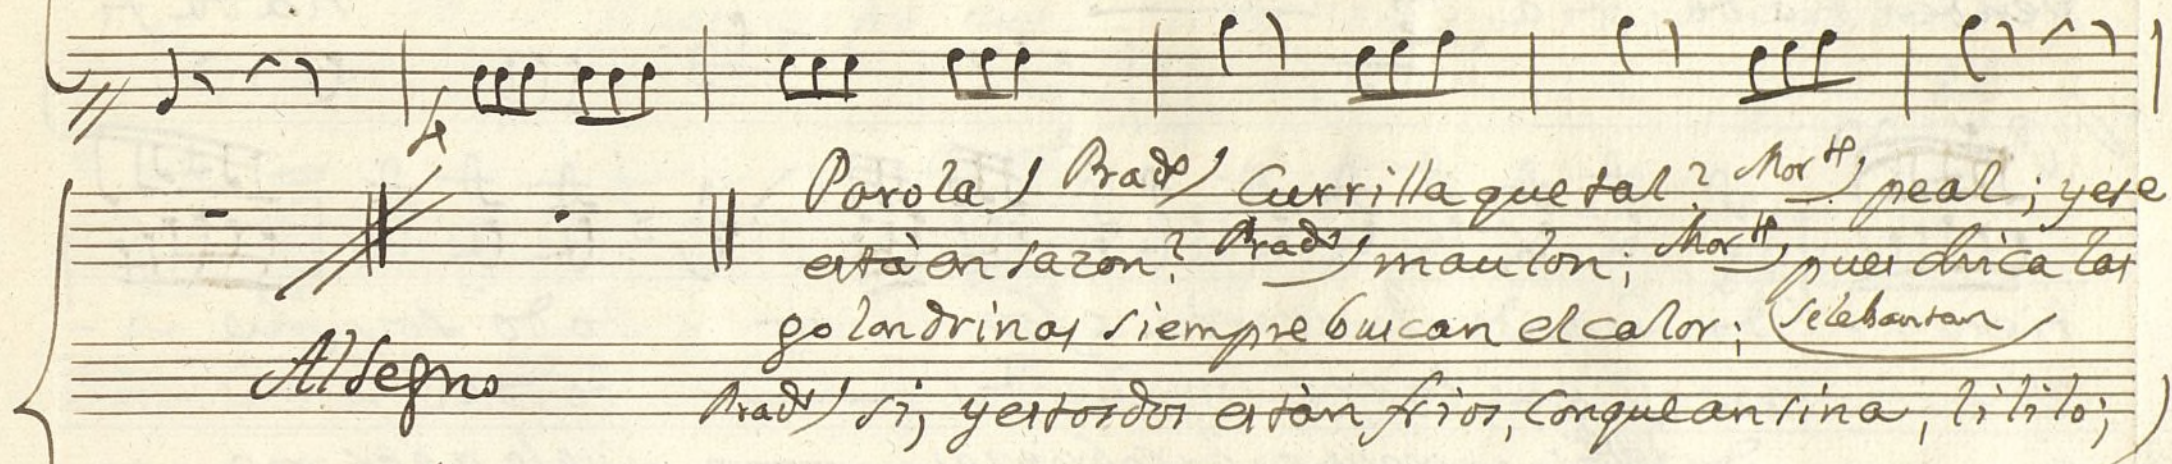 4
Parola) Prad.º) Currilla que tal? Mor.tt, peal; y ese
està en sazon? Prad.º) maulon; Mor.tt, pues chica las
golondrinas siempre buscan el calor; (Se lebantan
Al Segno
Prad.º) si, y estos dos estàn frios, con que ansina, lililo;)